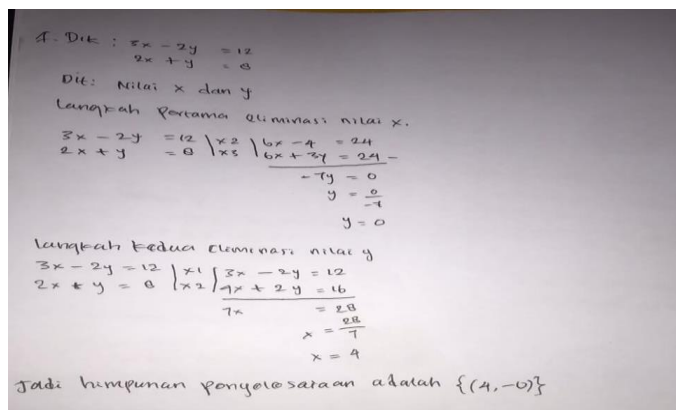 4. Dik : 3x - 2y = 12
2x + y = 8
Dit: Nilai x dan y
Langkah Pertama eliminasi nilai x.
3x - 2y = 12 | x2 | 6x - 4 = 24
2x + y = 8 | x3 | 6x + 3y = 24 -
-7y = 0
y = 0/-7
y = 0
Langkah kedua eleminasi nilai y
3x - 2y = 12 | x1 | 3x - 2y = 12
2x + y = 8 | x2 | 4x + 2y = 16
7x = 28
x = 28/7
x = 4
Jadi himpunan penyelesaraan adalah {(4,-0)}